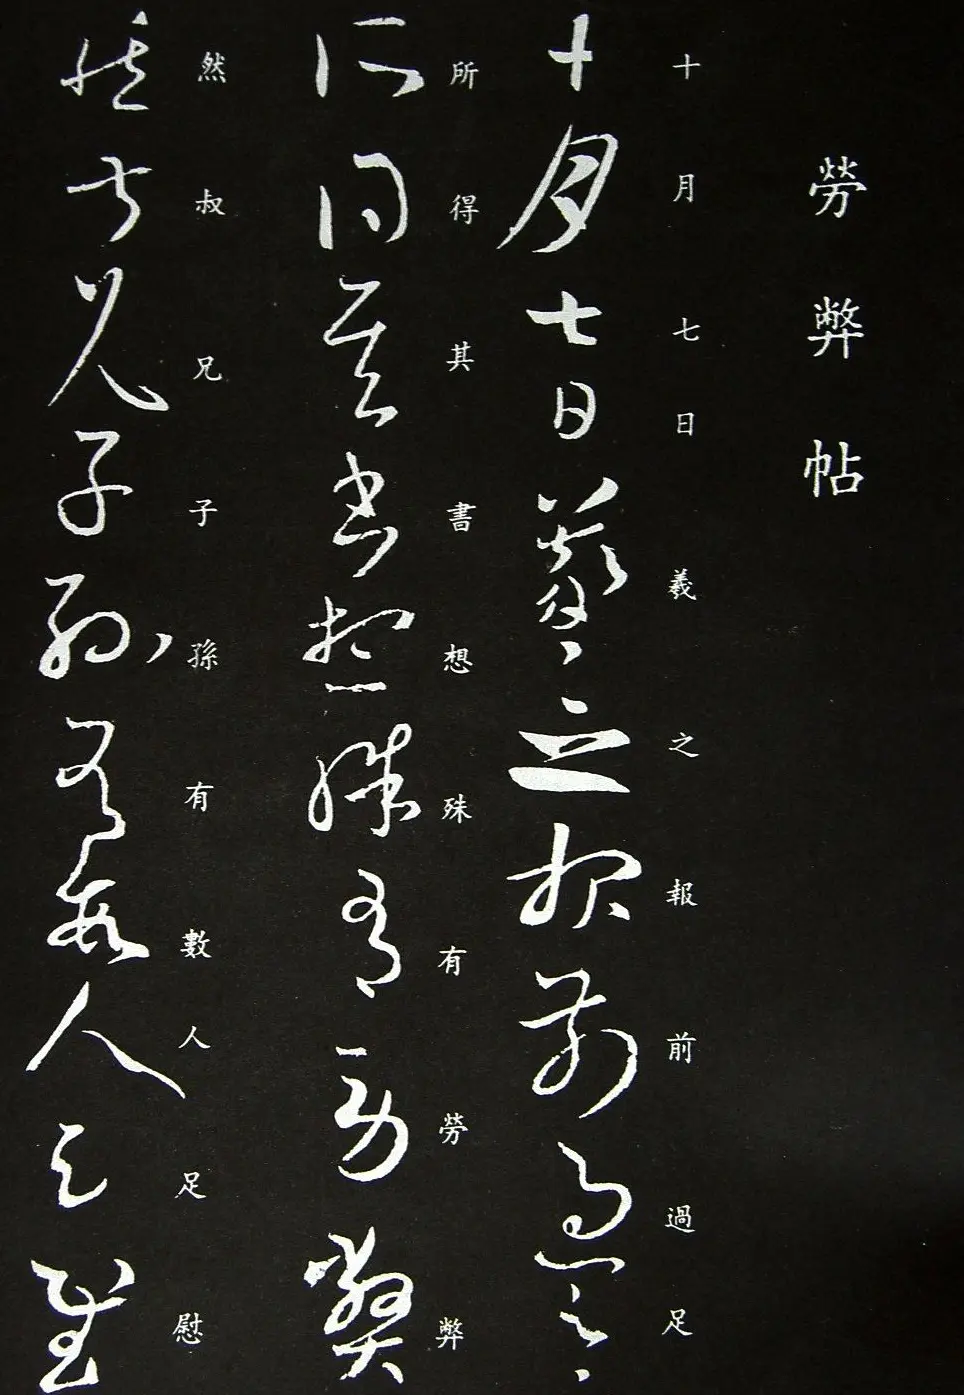 勞弊帖
十月七日羲之報前過足
所得其書想殊有勞弊
然叔兄子孫有數人足慰